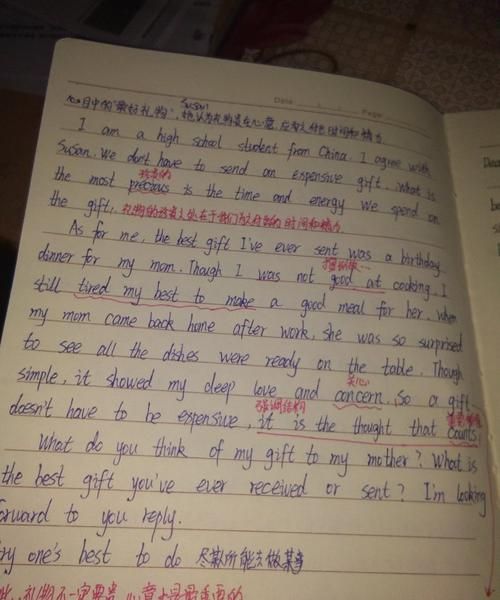 Date Page
Susan
心目中的“最好礼物”, 她认为礼物贵在心意, 应有
I am a high school student from China. I agree with
Susan. We don't have to send an expensive gift. What is
珍贵的
the most precious is the time and energy we spend on
the gift. 礼物的珍贵之处在于我们为之付出的时间和精力
As for me, the best gift I've ever sent was a birthday
擅长做…
dinner for my mom. Though I was not good at cooking, I
still tired my best to make a good meal for her. When
my mom came back home after work, she was so surprised
to see all the dishes were ready on the table. Though
关心
simple, it showed my deep love and concern. So a gift
强调结构
doesn't have to be expensive, it is the thought that counts.
What do you think of my gift to my mother? What is
the best gift you've ever received or sent? I'm looking
forward to you reply.
try one's best to do 尽某所能去做某事
礼物不一定要贵, 心意才是最重要的
Dear
be